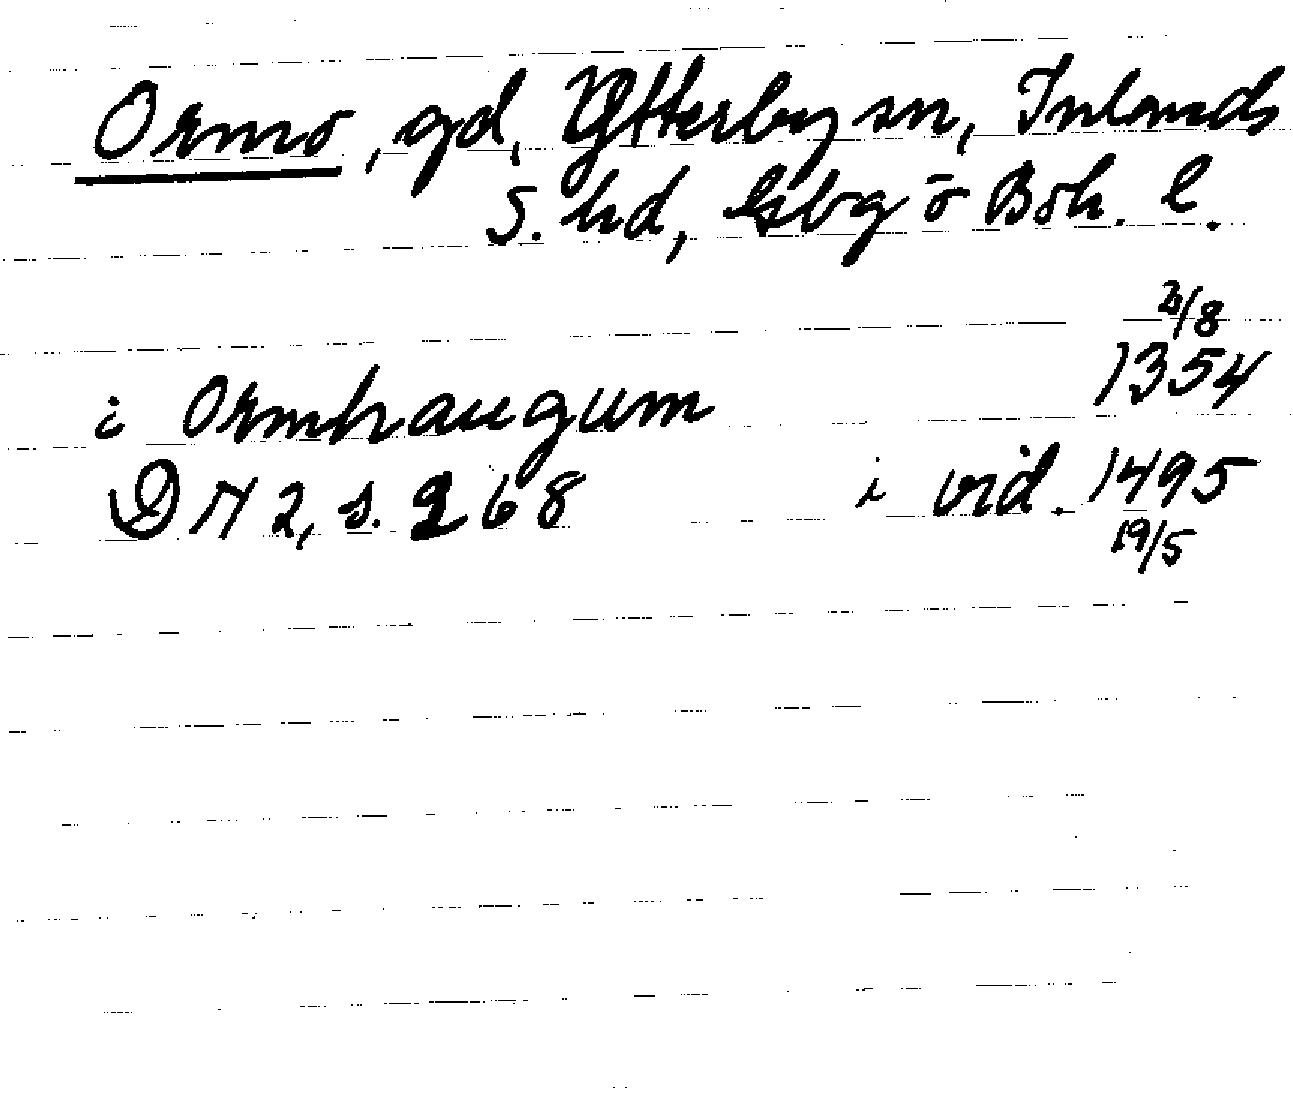 Ormo, gd, Ytterby sn, Inlands
S. hd, Gbg o Boh. l.
2/8
i Ormhaugum 1354
DN 2, s. 268 i vid. 1495
19/5